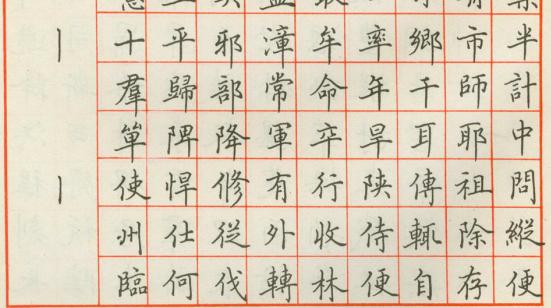 半計中問縱便
市師耶祖除存
鄉干耳傳輒自
率年旱陝侍便
牟命卒行收林
漳常軍有外轉
邪部降修從伐
平歸陴悍仕何
十羣單使州臨